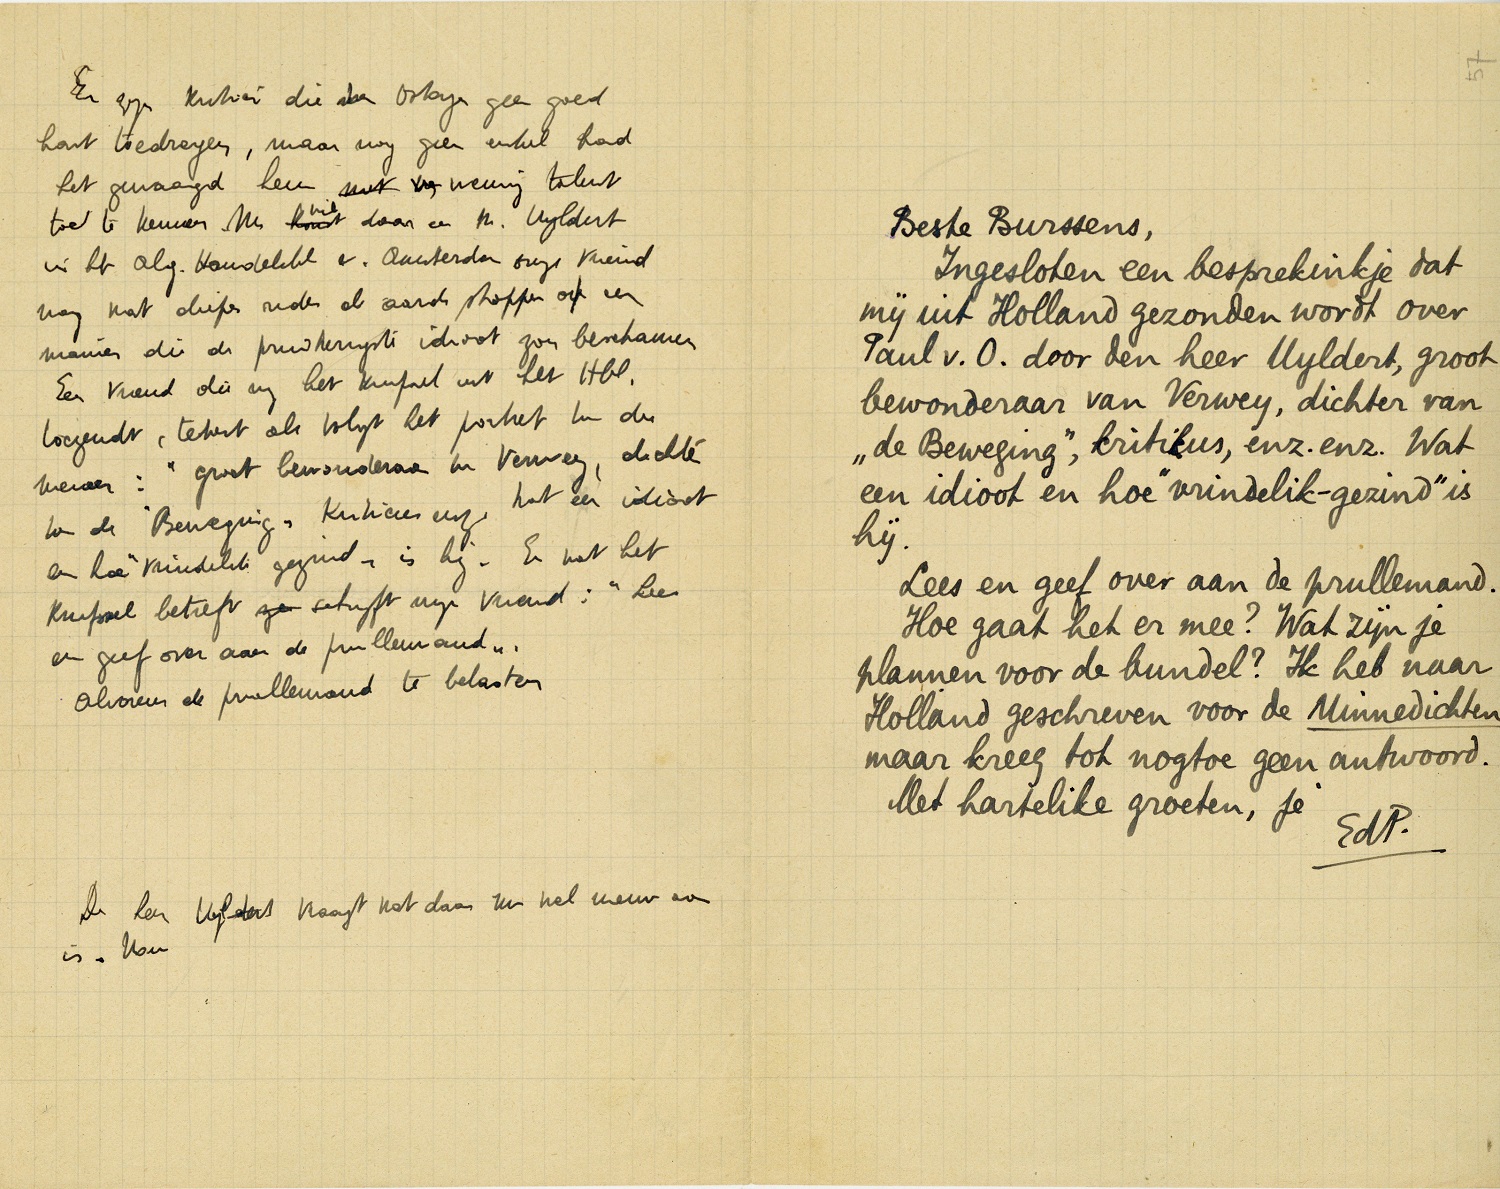 Er zijn critici die van Ostaijen geen goed
hart toedragen, maar nog geen enkel had
het gewaagd hem weinig talent
toe te kennen. Nu wil daar een M. Uyldert
in het Alg. Handelsbl v. Amsterdam onze vriend
nog wat dieper onder de aarde stoppen op een
manier die de idioot zou beschamen
Een vriend die mij het knipsel uit het Hbl.
toezendt, tekent als volgt het portret van die
meneer: "groot bewonderaar van Verwey, dichter
van de "Beweging" Kriticus enz. wat een idioot
en hoe "vrindelik gezind" is hij. En wat het
knipsel betreft schrijft mijn vriend: "Lees
en geef over aan de prullemand".
Alvorens de prullemand te belasten
De heer Uyldert vraagt wat daar nu wel nieuw aan
is. Nou
57
Beste Burssens,
Ingesloten een besprekinkje dat
mij uit Holland gezonden wordt over
Paul v. O. door den heer Uyldert, groot
bewonderaar van Verwey, dichter van
„de Beweging", kritikus, enz. enz. Wat
een idioot en hoe "vrindelik-gezind" is
hij.
Lees en geef over aan de prullemand.
Hoe gaat het er mee? Wat zijn je
plannen voor de bundel? Ik heb naar
Holland geschreven voor de Minnedichten
maar kreeg tot nogtoe geen antwoord.
Met hartelike groeten, je
EdP.